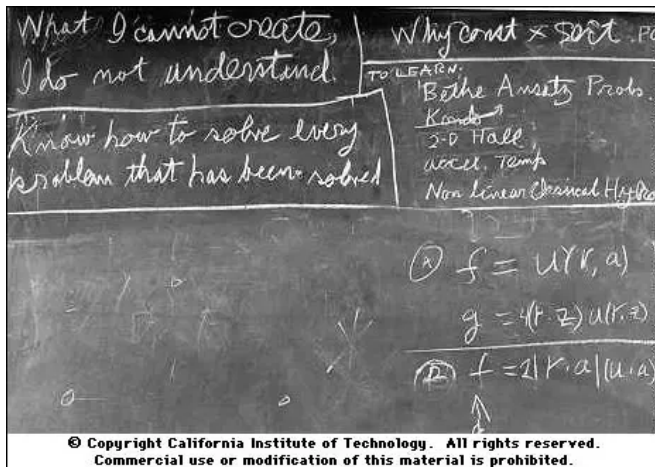 What I cannot create,
I do not understand.
Know how to solve every
problem that has been solved
Why const × sort .PO
TO LEARN:
Bethe Ansatz Probs.
Kondo
2-D Hall
accel. Temp
Non linear Classical Hydro
f = u(r, a)
g = 4(r·z) u(r, z)
f = 2|r·a|(u·a)
© Copyright California Institute of Technology. All rights reserved.
Commercial use or modification of this material is prohibited.